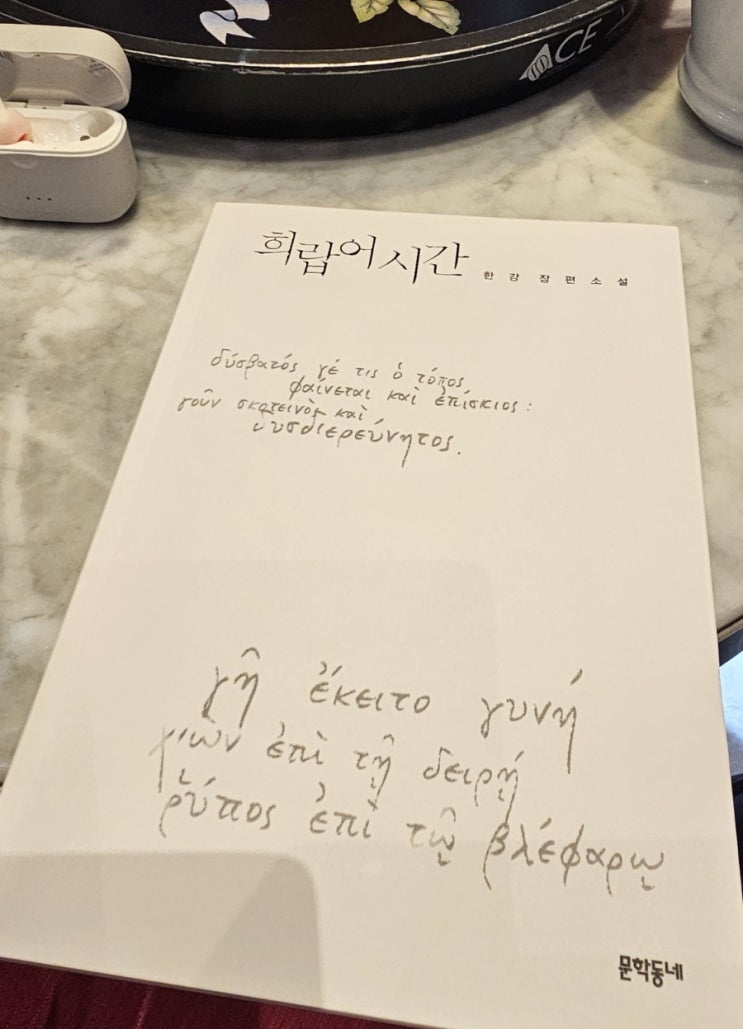 ACE
희랍어 시간
한강 장편소설
δύσβατός γέ τις ὁ τόπος
φαίνεται καὶ ἐπίσκιος :
γοῦν σκοτεινὸς καὶ
δυσδιερεύνητος.
γῆ ἔκειτο γυνή
χιὼν ἐπὶ τῇ δειρῇ
ῥύπος ἐπὶ τῷ βλέφαρῳ
문학동네